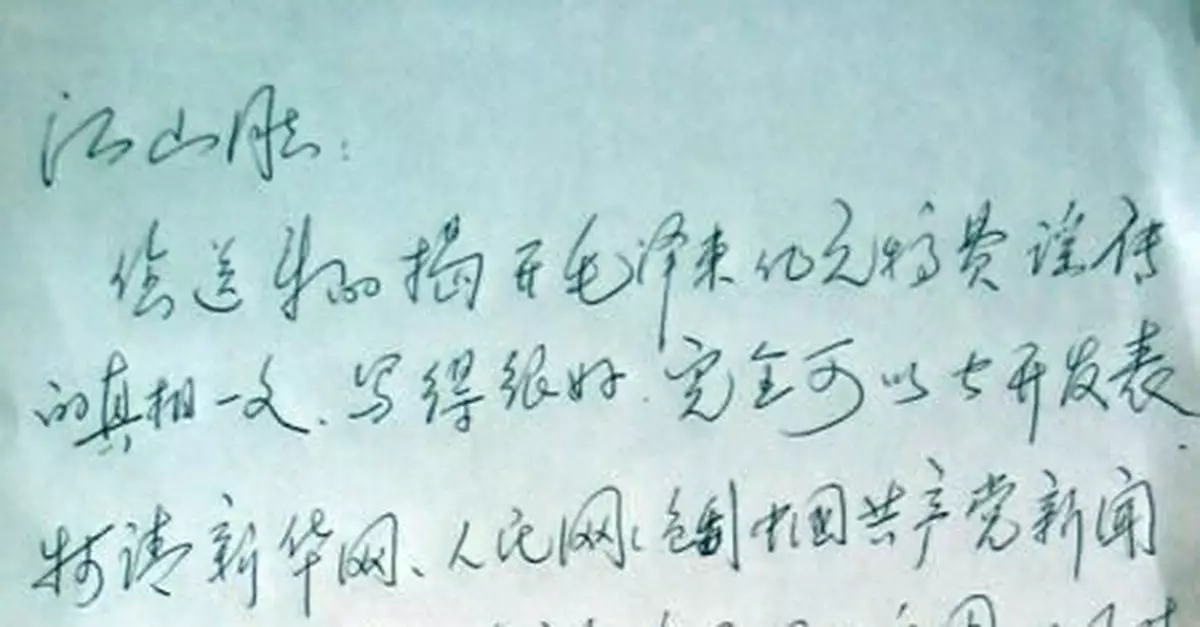 江山胜:
您送来的揭开毛泽东亿元稿费谣传
的真相一文、写得很好.完全可以公开发表.
特请新华网、人民网(包制中国共产党新闻